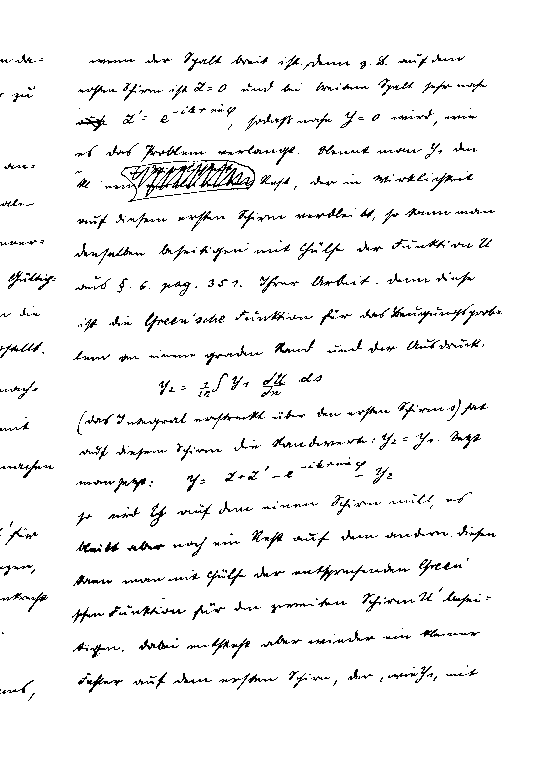 wenn der Spalt breit ist. Denn z. B. auf dem
ersten Schirm ist Z=0 und bei breitem Spalt sehr nahe
Z' = e^{-ikr sin φ}, sodaß nahe Y=0 wird, wie
es das Problem verlangt. Nennt man Y_1 den
Rest, der in Wirklichkeit
auf diesem ersten Schirm verbleibt, so kann man
denselben beseitigen mit Hülfe der Funktion U
aus §. 6. pag. 351. Ihrer Arbeit. Denn diese
ist die Green'sche Funktion für das Beugungsprob-
lem an einem graden Rand und der Ausdruck.
Y_2 = ∫ Y_1 dU/dn ds
(das Integral erstreckt über den ersten Schirm s) hat
auf diesem Schirm die Randwerte: Y_2 = Y_1. Setzt
man jetzt: Y = Z+Z' - e^{-ikr sin φ} - Y_2
so wird Y auf dem einen Schirm null, es
bleibt aber noch ein Rest auf dem andern. diesen
kann man mit Hülfe der entsprechenden Green'
schen Funktion für den zweiten Schirm U' besei-
tigen. Dabei entsteht aber wieder ein kleiner
Fehler auf dem ersten Schirm, der, wie Y_1, mit
da-
zu
an-
Gültig-
die
mach-
mit
machen
für